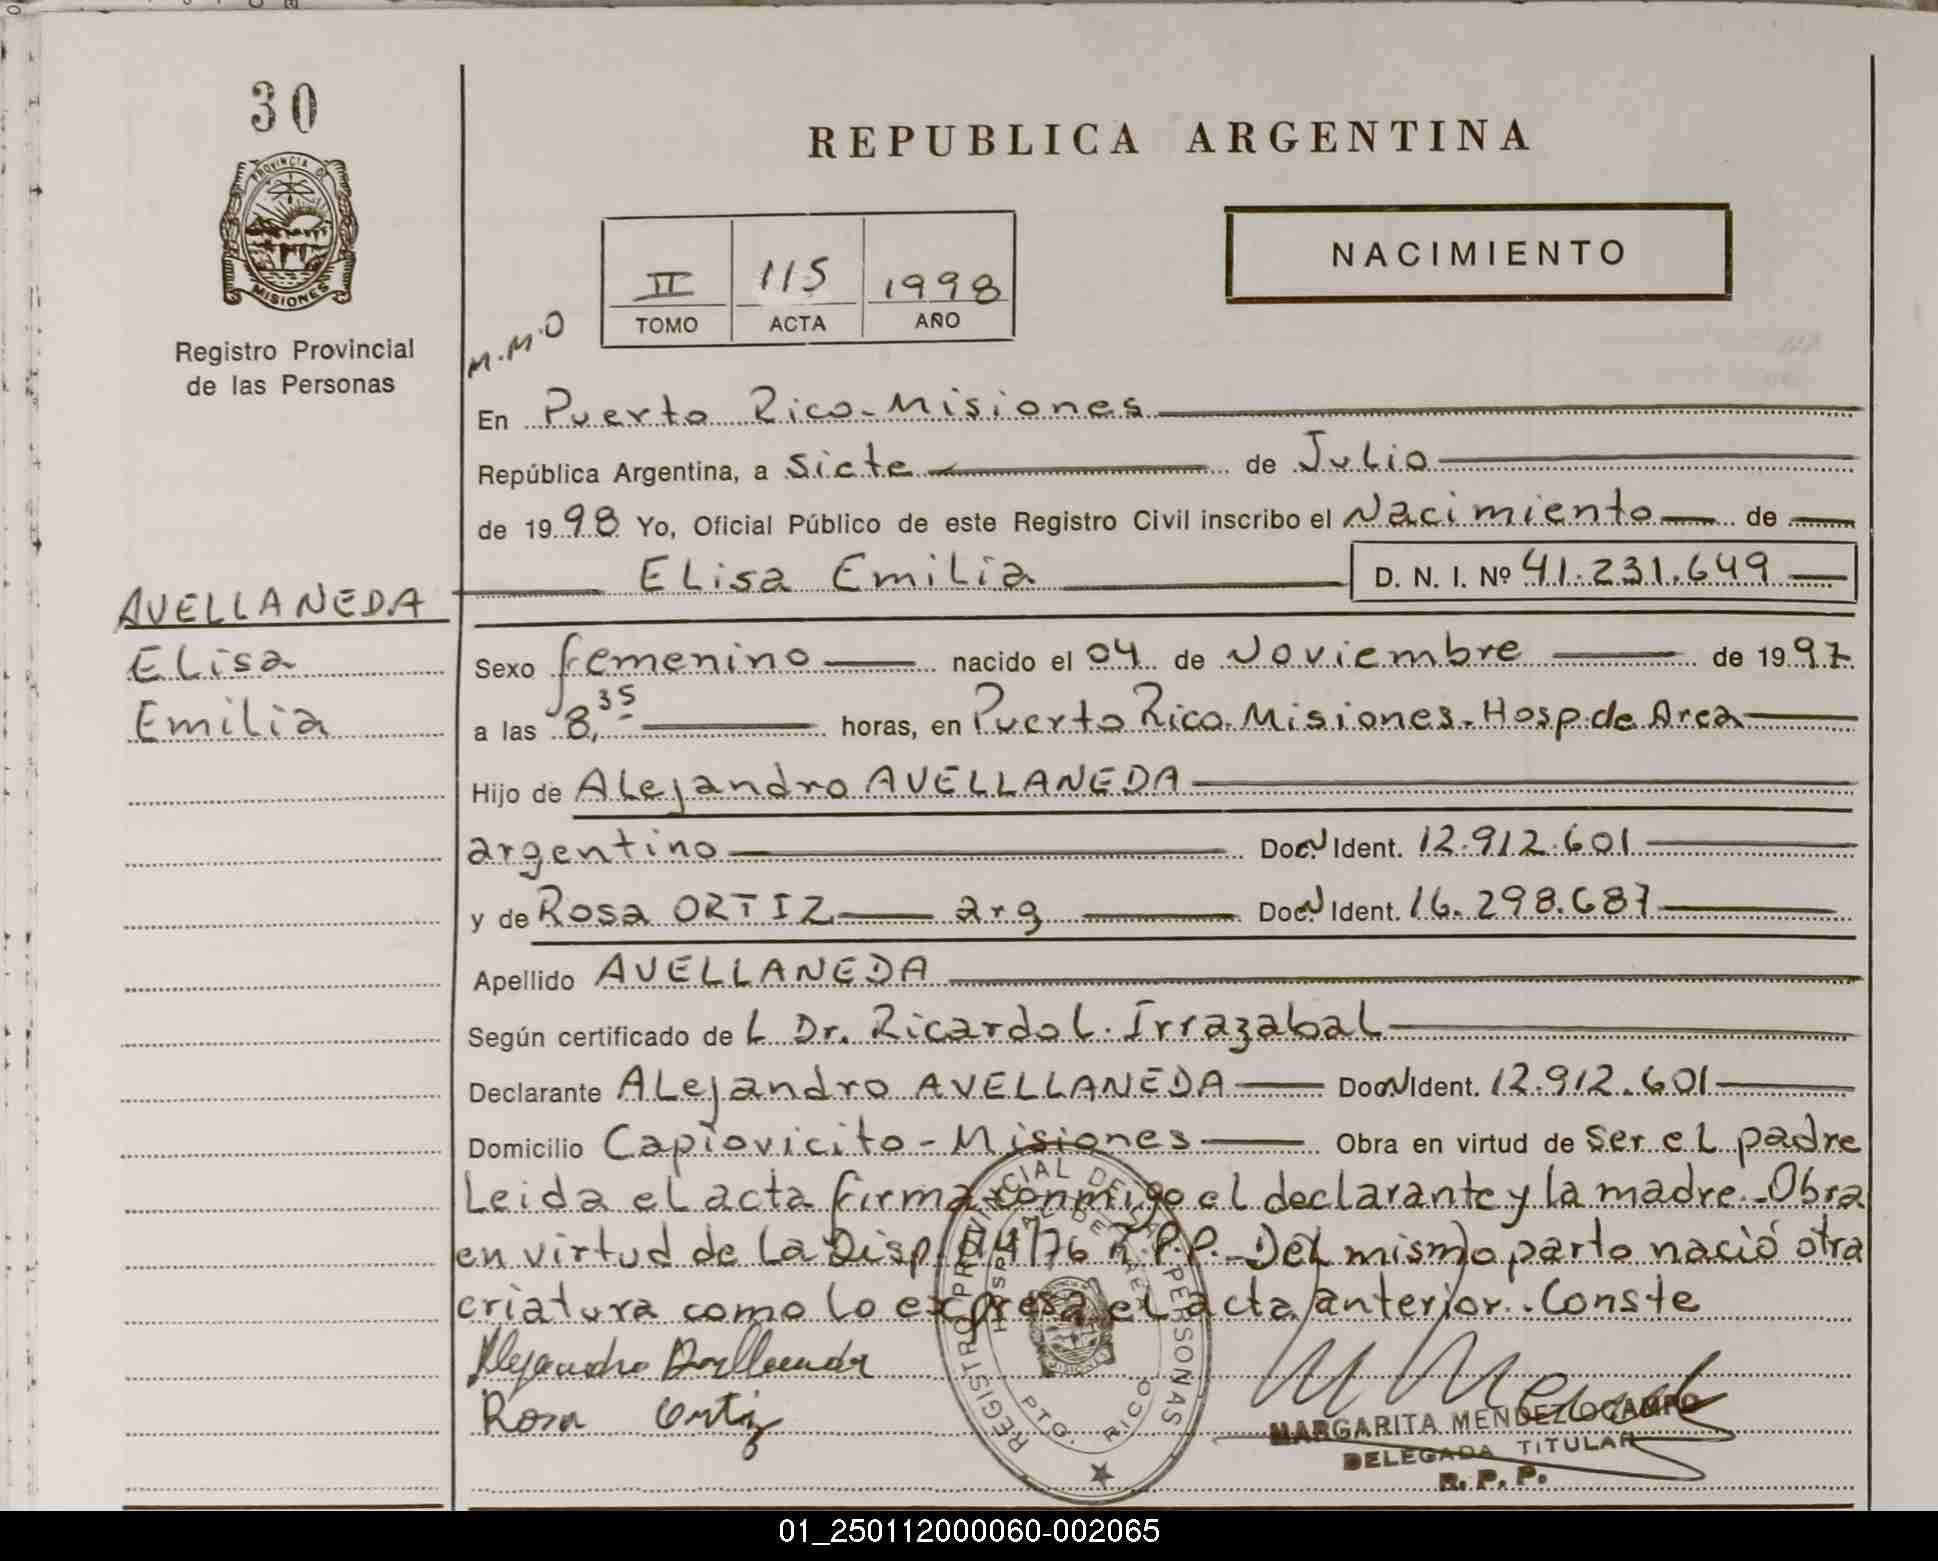 30
PROVINCIA DE
MISIONES
Registro Provincial
de las Personas
REPUBLICA ARGENTINA
NACIMIENTO
II 115 1998
TOMO ACTA AÑO
M.M.O
En Puerto Rico-Misiones
República Argentina, a siete de Julio
de 1998 Yo, Oficial Público de este Registro Civil inscribo el Nacimiento de
Elisa Emilia D. N. I. Nº 41.231.649
AVELLANEDA
Elisa
Emilia
Sexo femenino nacido el 04 de Noviembre de 1997
a las 8,35 horas, en Puerto Rico. Misiones. Hosp. de Area
Hijo de Alejandro AVELLANEDA
argentino Doc. Ident. 12.912.601
y de Rosa ORTIZ arg Doc. Ident. 16.298.687
Apellido AVELLANEDA
Según certificado de L Dr. Ricardo L. Irrazabal
Declarante Alejandro AVELLANEDA Doc. Ident. 12.912.601
Domicilio Capiovicito - Misiones Obra en virtud de ser el padre
Leida el acta firma conmigo el declarante y la madre. Obra
en virtud de la Disp. 4/76 R.P.P. Del mismo parto nació otra
criatura como lo expresa el acta anterior. Conste
Alejandro Avellaneda
Rosa Ortiz
REGISTRO PROVINCIAL DE LAS PERSONAS
PTO. RICO
MARGARITA MENDEZ OCAMPO
DELEGADA TITULAR
R. P. P.
01_250112000060-002065